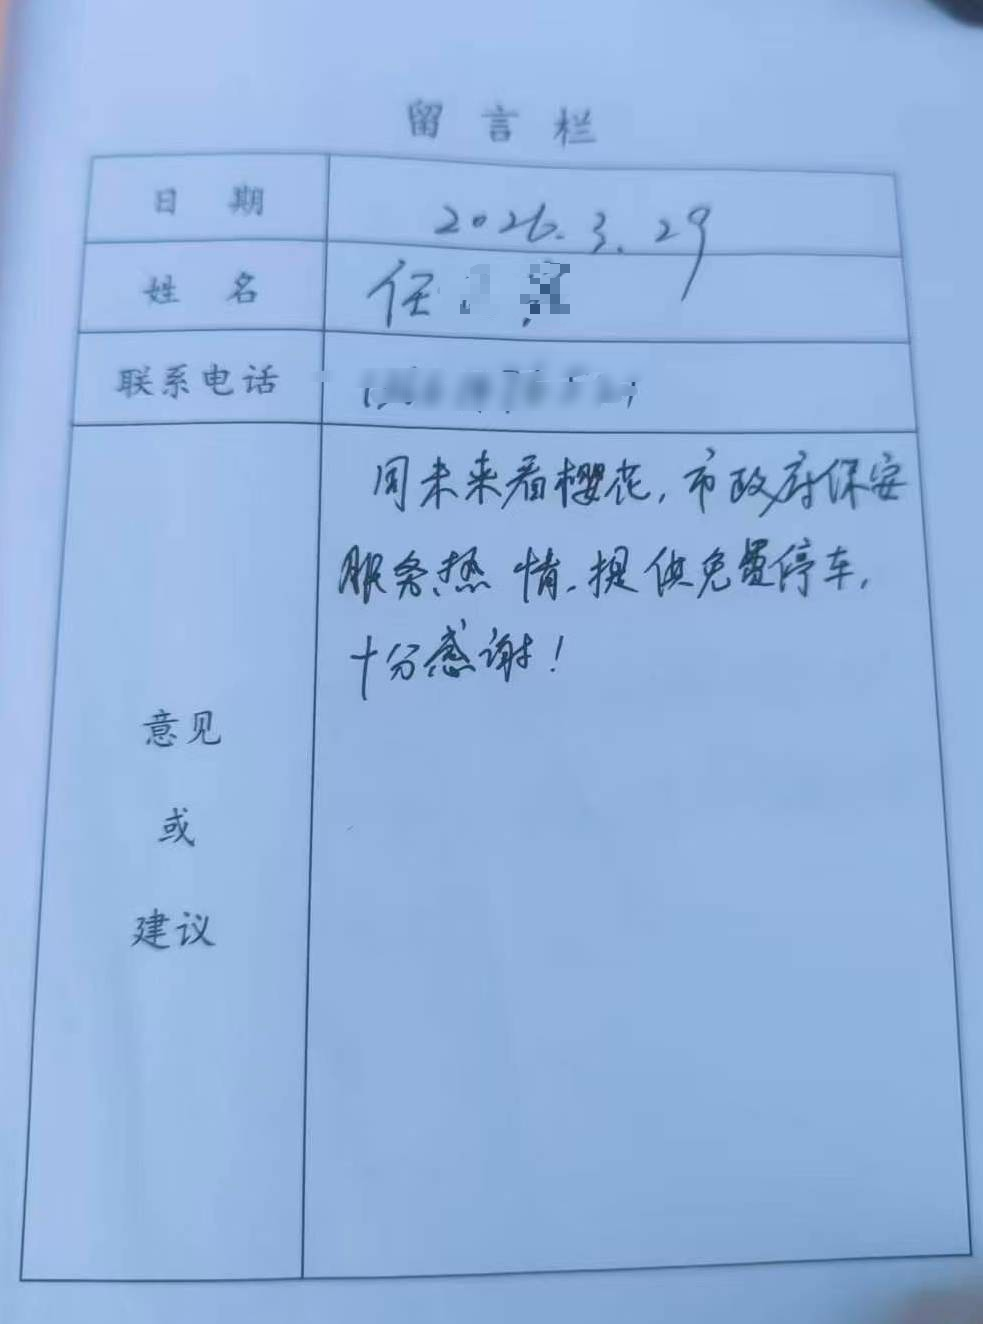 留言栏
日期 2026.3.29
姓名 任
联系电话
周末来看樱花,市政府保安
服务热情.提供免费停车,
十分感谢!
意见
或
建议